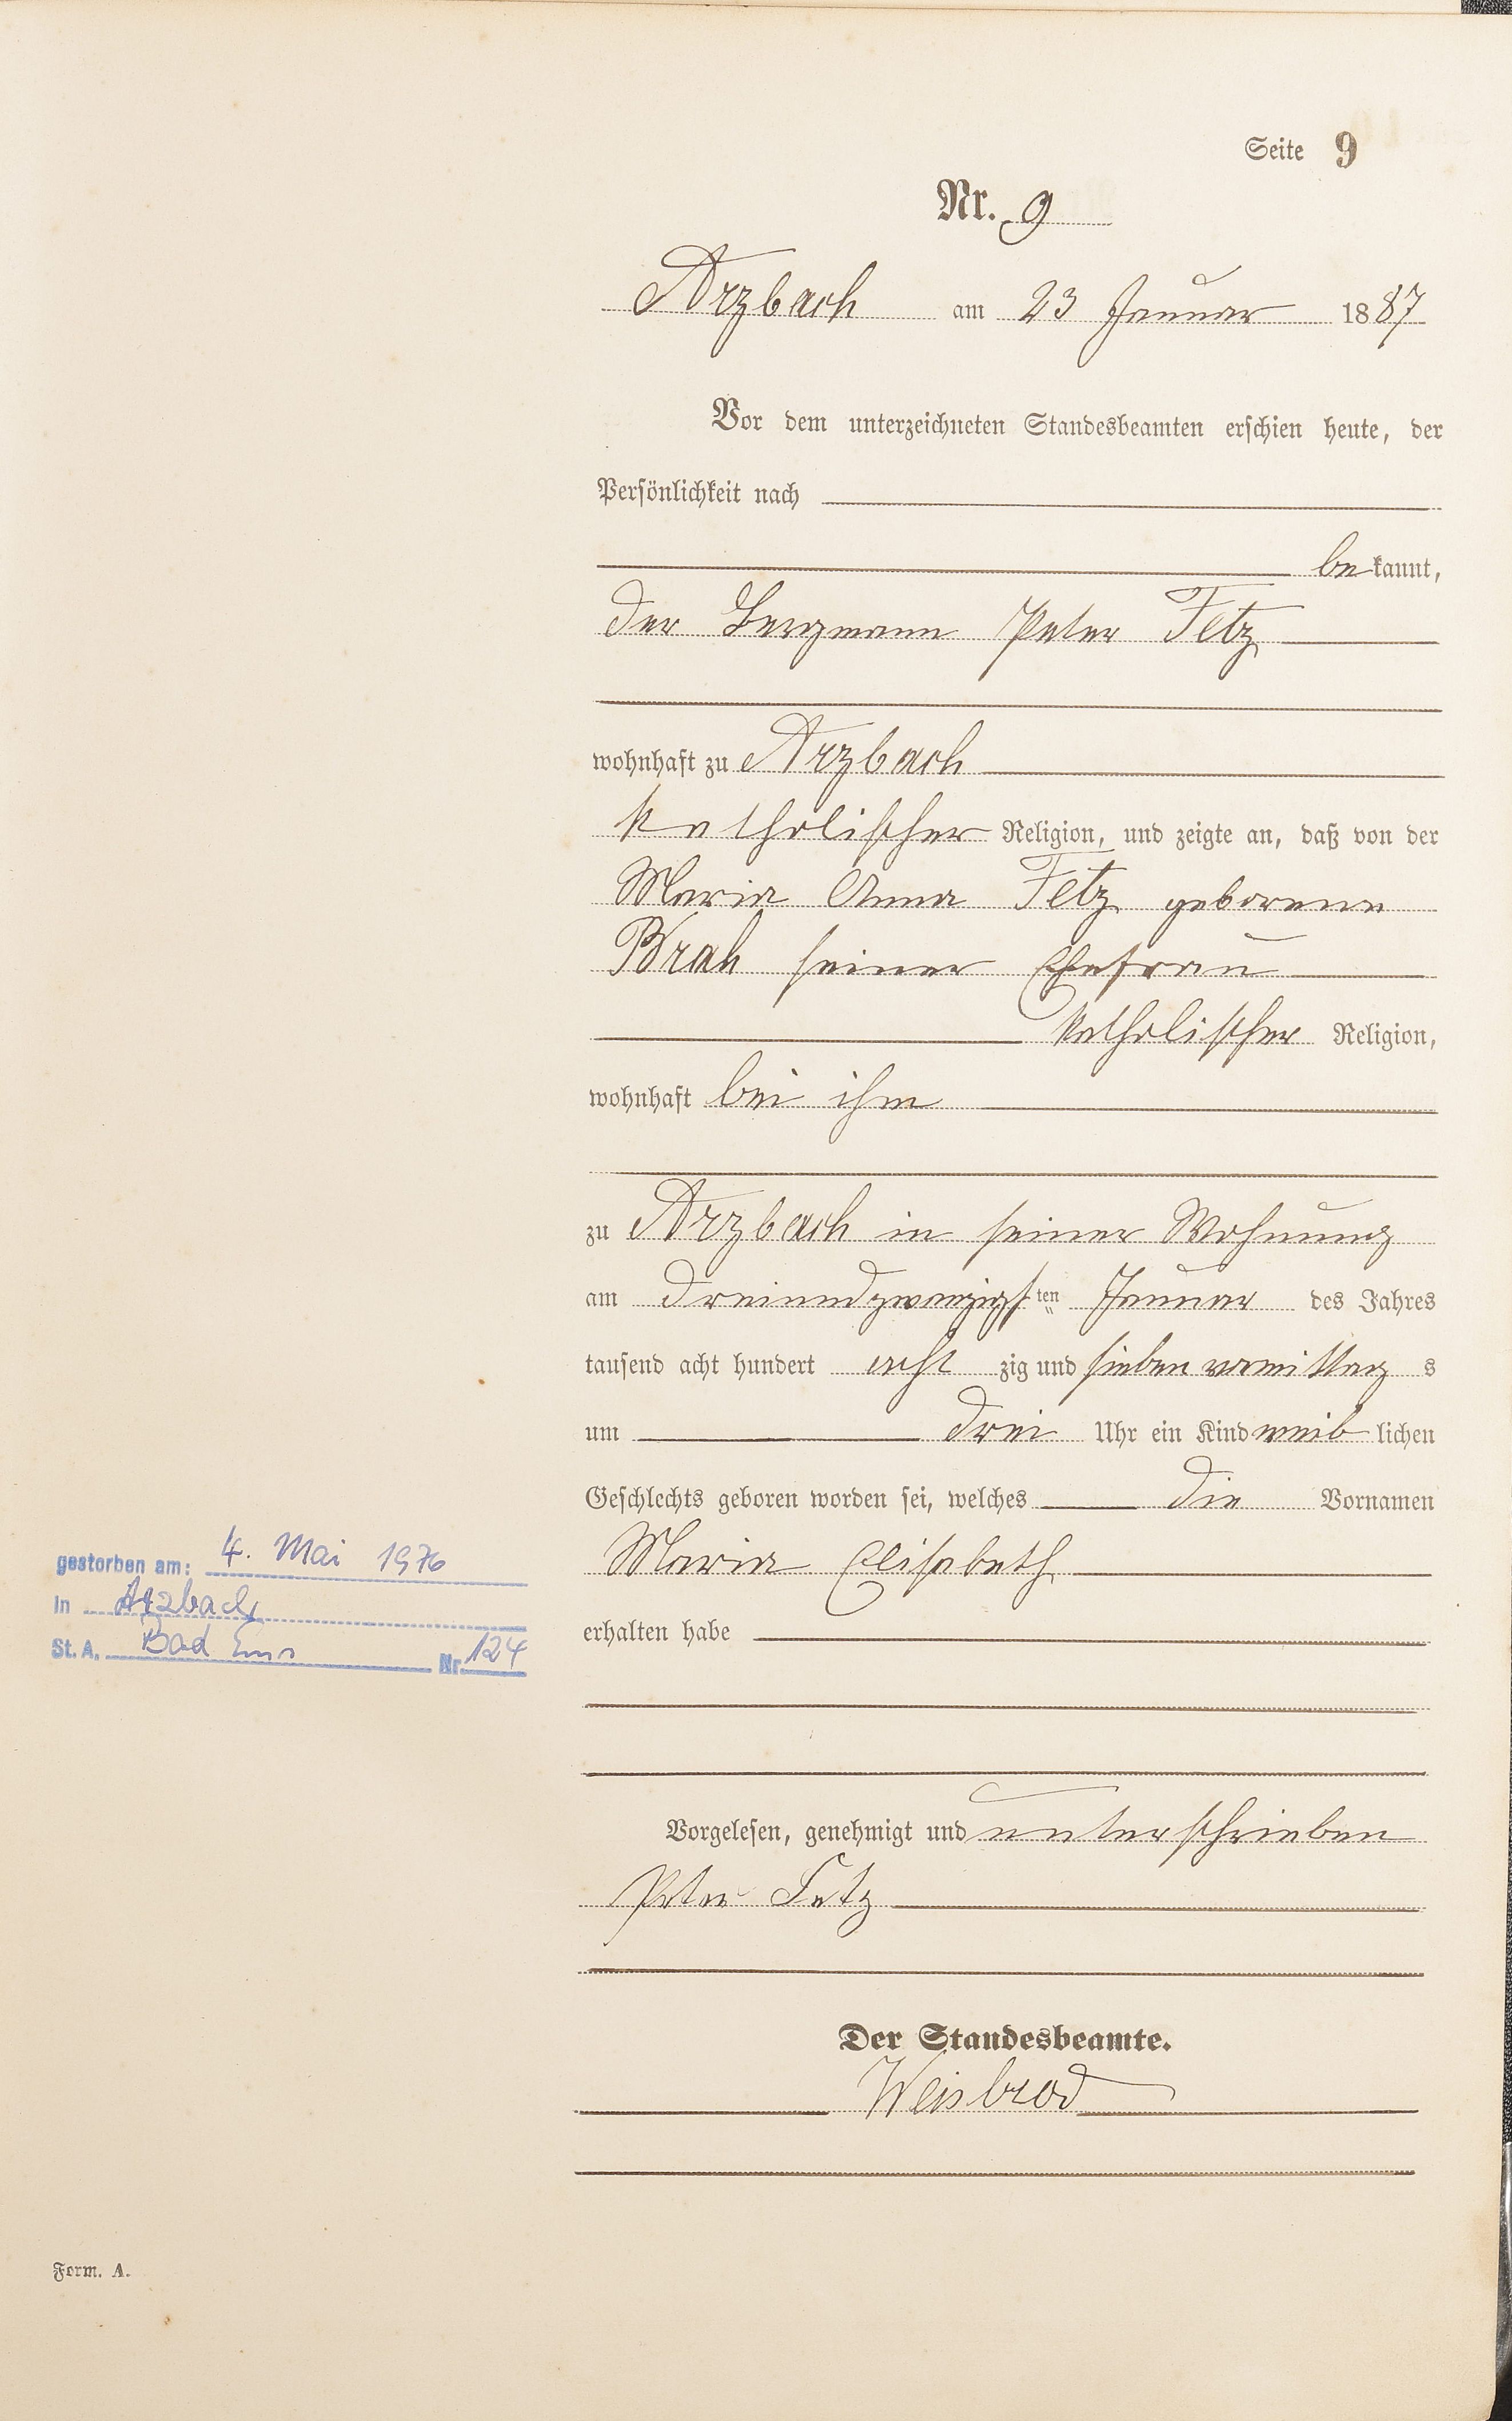 Seite 9
Nr. 9
Arzbach am 23 Januar 1887
Vor dem unterzeichneten Standesbeamten erschien heute, der
Persönlichkeit nach
bekannt,
der Bergmann Peter Fetz
wohnhaft zu Arzbach
katholischer Religion, und zeigte an, daß von der
Maria Anna Fetz geborene
Brah seiner Ehefrau
katholischer Religion,
wohnhaft bei ihm
zu Arzbach in seiner Wohnung
am dreiundzwanzigsten Januar des Jahres
tausend acht hundert achtzig und sieben vormittags
um drei Uhr ein Kind weiblichen
Geschlechts geboren worden sei, welches die Vornamen
Maria Elisabeth
erhalten habe
gestorben am: 4. Mai 1976
in Arzbach
St. A. Bad Ems Nr. 124
Vorgelesen, genehmigt und unterschrieben
Peter Fetz
Der Standesbeamte.
Weisbrod
Form. A.